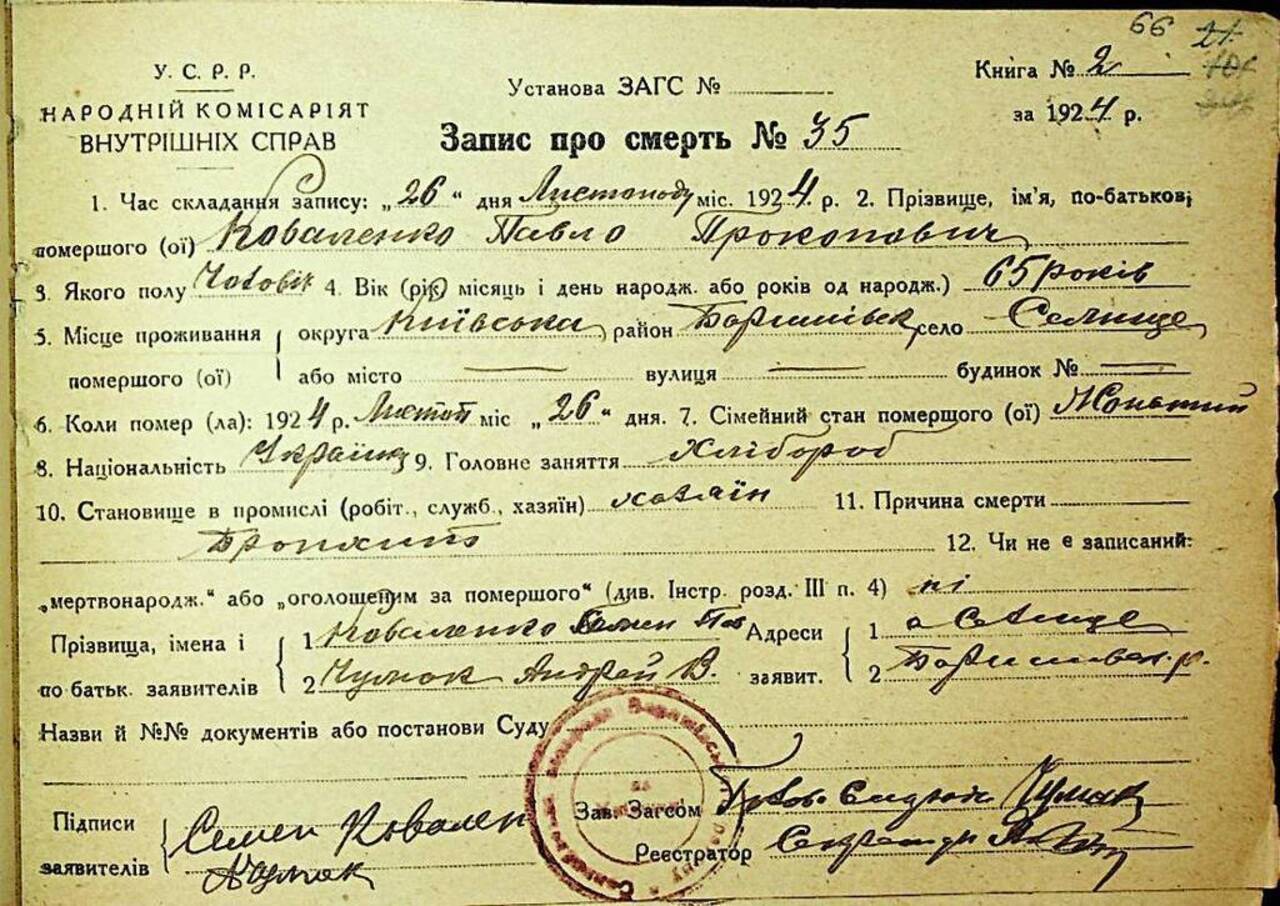 66 21
У. С. Р. Р.
НАРОДНІЙ КОМІСАРІЯТ
ВНУТРІШНІХ СПРАВ
Установа ЗАГС №
Книга № 2
за 1924 р.
Запис про смерть № 35
1. Час складання запису: „26“ дня Листопаду міс. 1924 р. 2. Прізвище, ім'я, по-батькові
помершого (ої) Коваленко Павло Прокопович
3. Якого полу Чоловік 4. Вік (рік, місяць і день народж. або років од народж.) 65 років
5. Місце проживання округа Київська район Баришівськ село Селище
помершого (ої) або місто — вулиця — будинок № —
6. Коли помер (ла): 1924 р. Листоп міс „26“ дня. 7. Сімейний стан помершого (ої) Жонатий
8. Національність Україн 9. Головне заняття Хлібороб
10. Становище в промислі (робіт., служб., хазяїн) хазяїн 11. Причина смерти
Бронхит 12. Чи не є записаний:
„мертвонародж.“ або „оголошеним за помершого“ (див. Інстр. розд. III п. 4) ні
Прізвища, імена і 1 Коваленко Семен Пав Адреси 1 с Селище
по батьк. заявителів 2 Чумак Андрей В. заявит. 2 Баришівськ. р.
Назви й №№ документів або постанови Суду
Підписи Семен Ковален Зав. Загсом Чумак
заявителів АЧумак Реєстратор